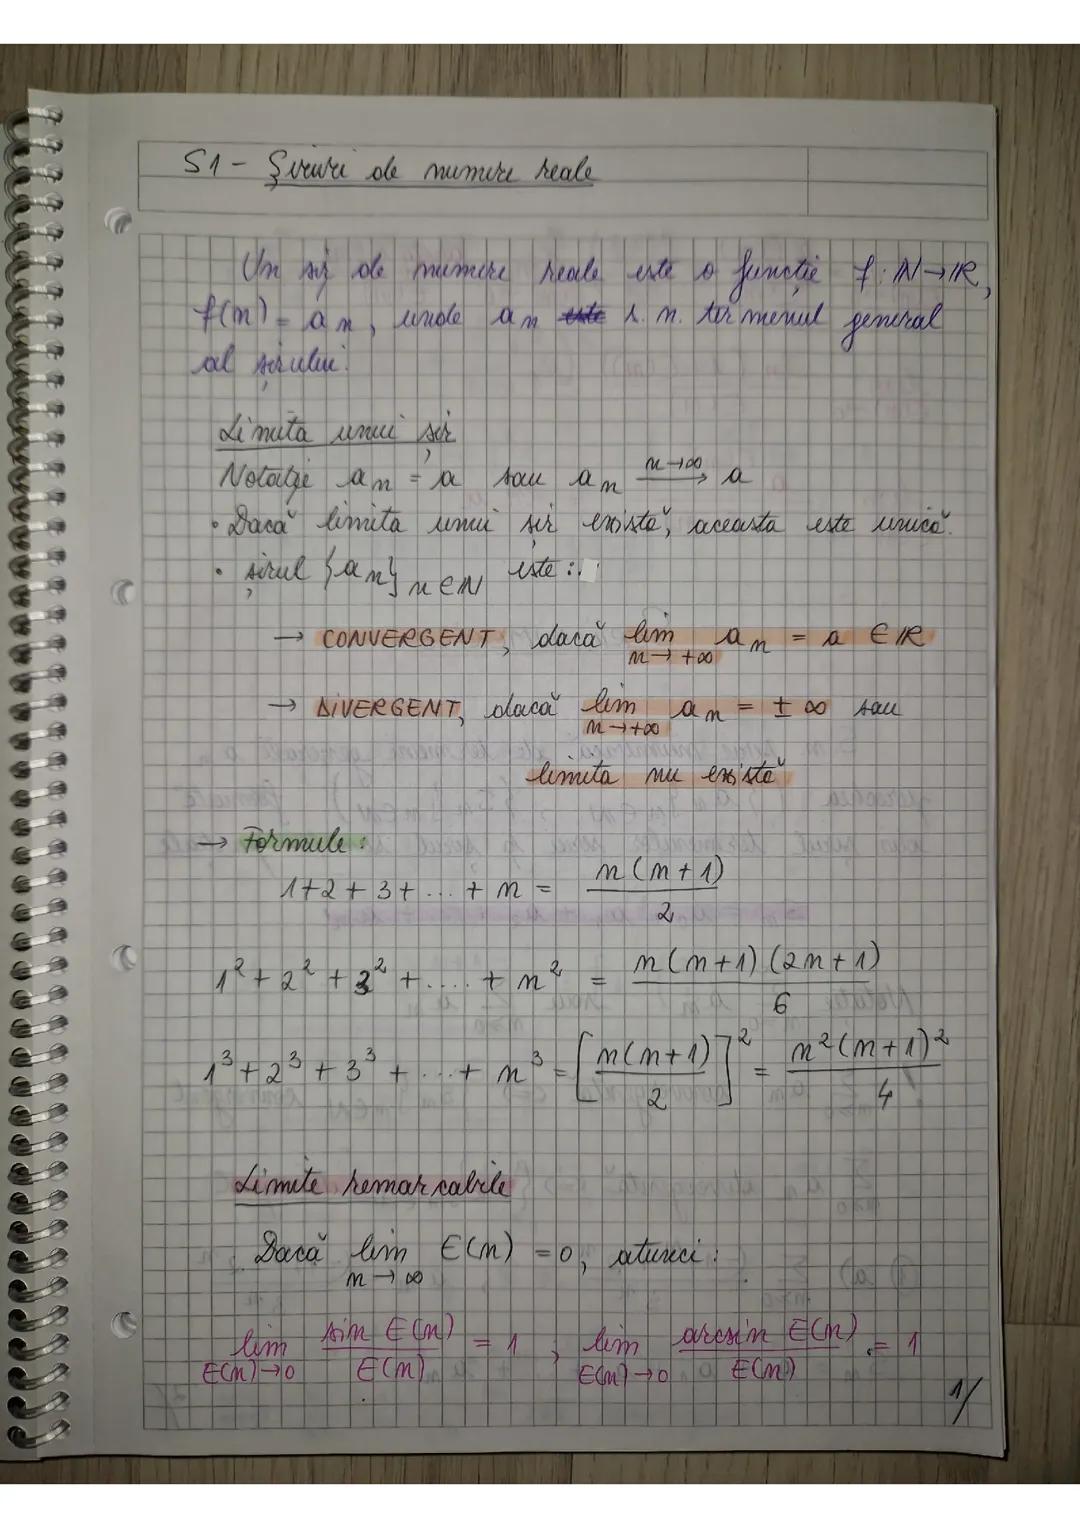 S1 - Șiruri de numere reale
Un șir de numere reale este o funcție f: ℕ→ℝ,
f(n) = a_n, unde a_n ~~este~~ s. n. termenul general
al șirului.
Limita unui șir
Notație a_n = a sau a_n —n→∞→ a
• Dacă limita unui șir există, aceasta este unică.
• șirul {a_n}_{n∈ℕ} este:
→ CONVERGENT, dacă lim_{n→+∞} a_n = a ∈ ℝ
→ DIVERGENT, dacă lim_{n→+∞} a_n = ± ∞ sau
limita nu există
→ Formule:
1+2+3+...+n = n(n+1)/2
1²+2²+3²+....+n² = n(n+1)(2n+1)/6
1³+2³+3³+...+n³ = [n(n+1)/2]² = n²(n+1)²/4
Limite remarcabile
Dacă lim_{n→∞} E(n) = 0, atunci:
lim_{E(n)→0} sin E(n)/E(n) = 1, lim_{E(n)→0} arcsin E(n)/E(n) = 1
1/